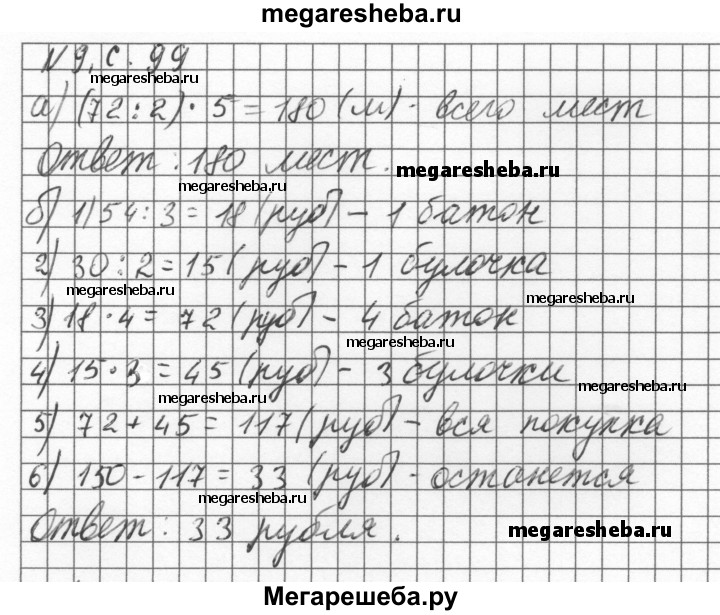 megaresheba.ru
N 9, с. 99
megaresheba.ru
а) (72:2)·5=180 (м)- всего мест
Ответ: 180 мест.
megaresheba.ru
megaresheba.ru
б) 1) 54:3=18 (руб) - 1 батон
2) 30:2=15 (руб) - 1 булочка
megaresheba.ru
megaresheba.ru
3) 18·4= 72 (руб) - 4 батон
megaresheba.ru
4) 15·3=45 (руб) - 3 булочки
megaresheba.ru
megaresheba.ru
5) 72+45=117 (руб) - вся покупка
6) 150-117=33 (руб) - останется
megaresheba.ru
Ответ: 33 рубля.
megaresheba.ru
Мегарешеба.ру